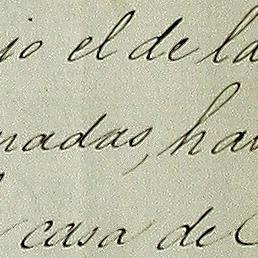 jo el de la
nadas, ha
casa de